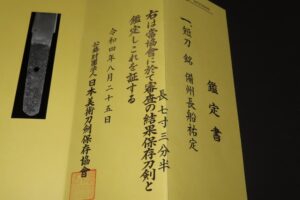 鑑定書
一、短刀 銘 備州長船祐定
長 七寸三分半
右は當協會に於て審査の結果保存刀剣と
鑑定しこれを証する
令和四年八月二十五日
公益財団法人日本美術刀剣保存協會